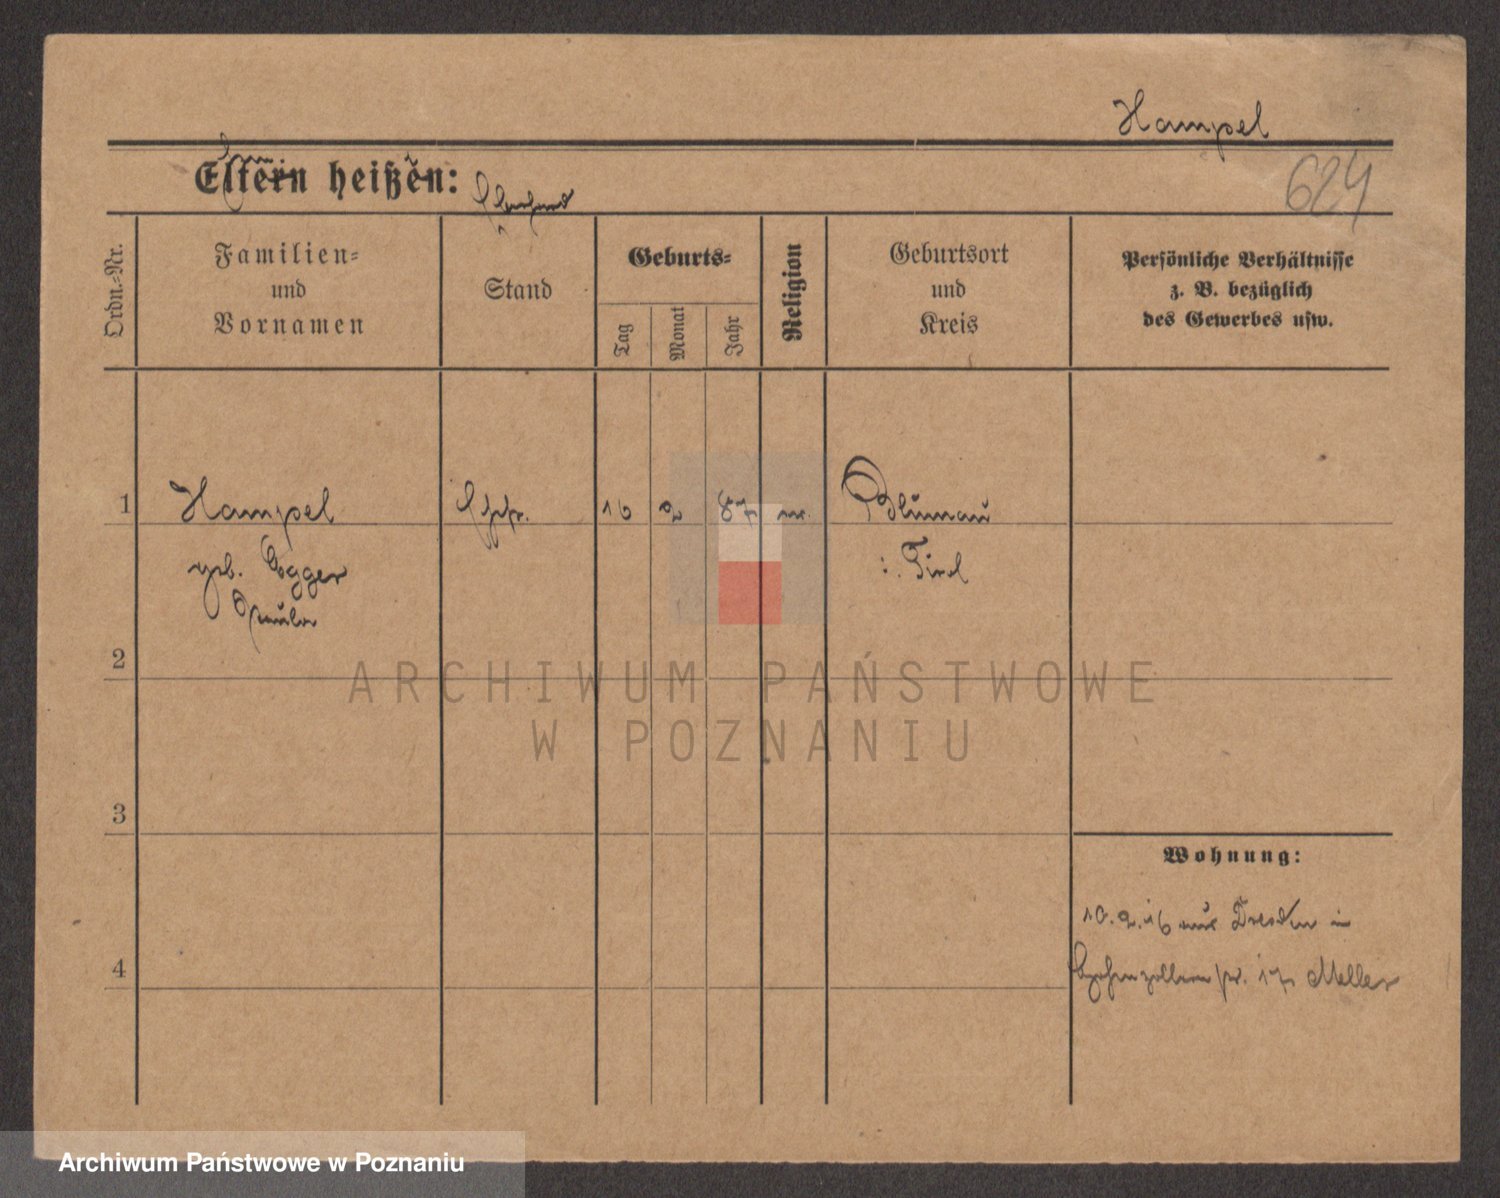 Hampel
Eltern heißen:
624
Ordn.-Nr.
Familien-
und
Vornamen
Stand
Geburts-
Tag
Monat
Jahr
Religion
Geburtsort
und
Kreis
Persönliche Verhältnisse
z. B. bezüglich
des Gewerbes usw.
1
Hampel
geb. Egger
Paula
16 2 87
Blumau
i. Tirol
2
ARCHIWUM PAŃSTWOWE
W POZNANIU
3
Wohnung:
10.2.16 aus Dresden in
Hohenzollernstr. 17 Meller
4
Archiwum Państwowe w Poznaniu